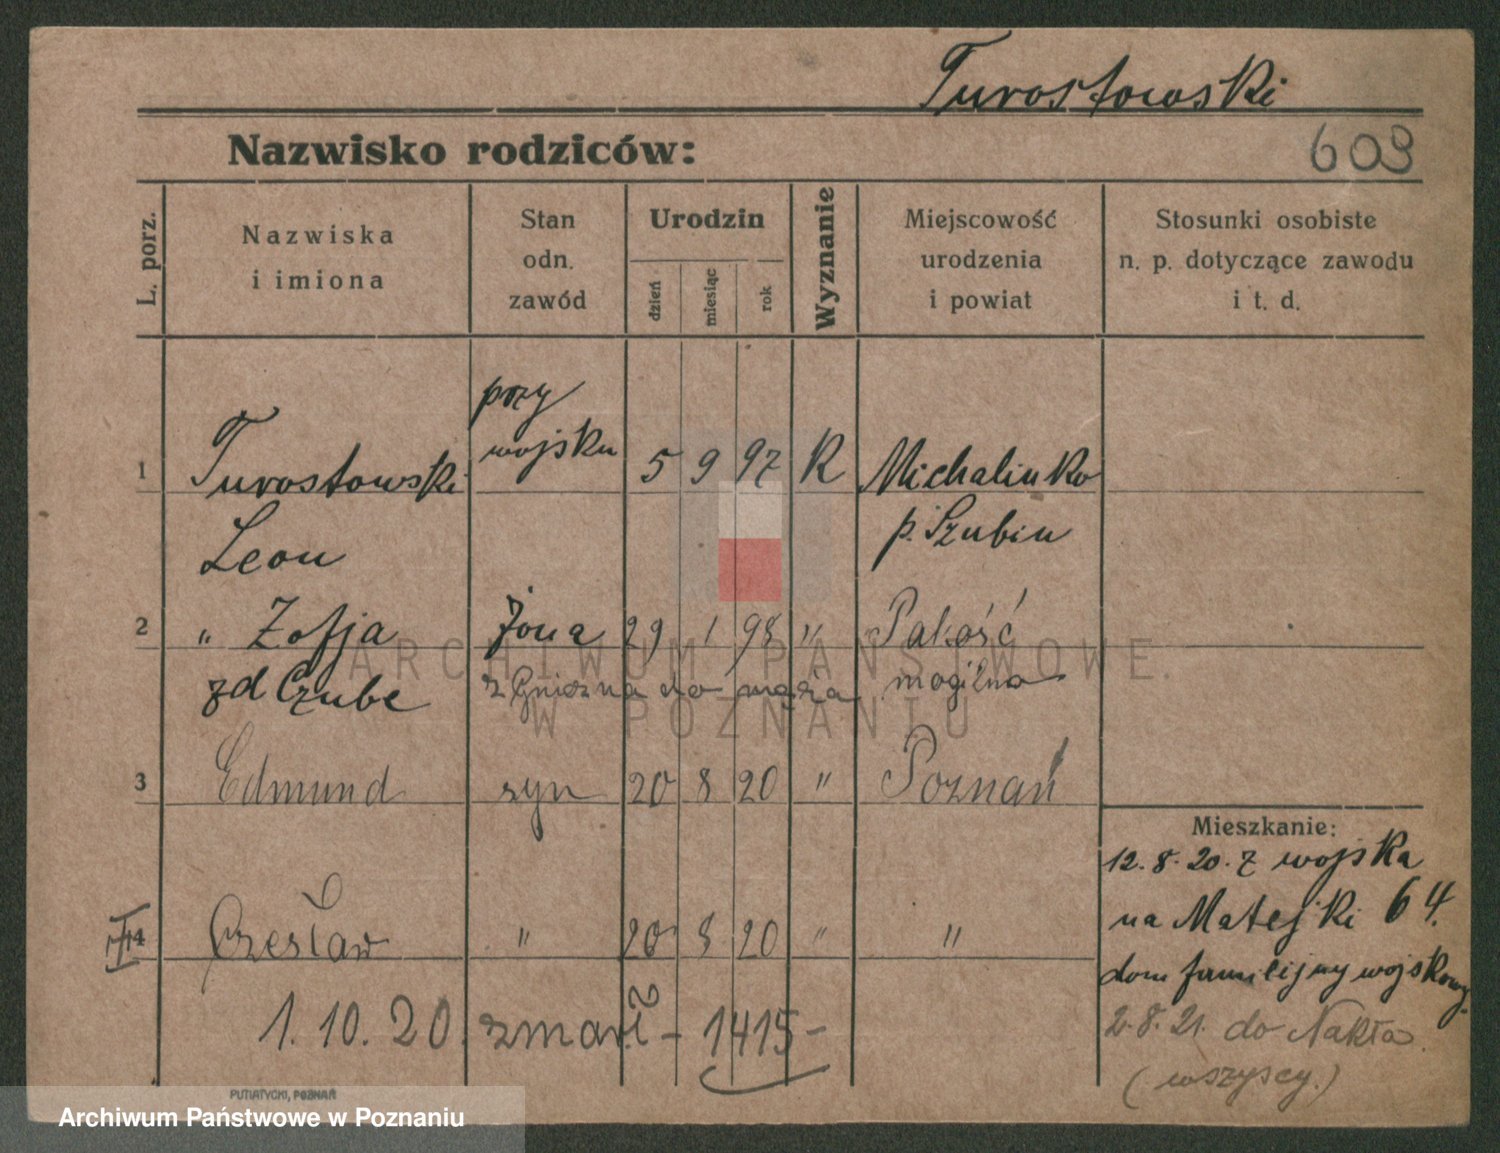 Turostowski
Nazwisko rodziców:
603
L. porz.
Nazwiska
i imiona
Stan
odn.
zawód
Urodzin
dzień
miesiąc
rok
Wyznanie
Miejscowość
urodzenia
i powiat
Stosunki osobiste
n. p. dotyczące zawodu
i t. d.
przy
wojsku
1 Turostowski 5 9 97 R Michalinko
Leon p. Szubin
2 " Zofja żona 29 1 98 " Pakość
zd Czube z Gniezna do męża mogilno
3 Edmund syn 20 8 20 " Poznań
4 Czesław " 20 8 20 " "
1. 10. 20. zmarł - 1415 -
Mieszkanie:
12. 8. 20. z wojska
na Matejki 64.
dom familijny wojskowy.
2. 8. 21. do Nakła.
(wszyscy.)
PUTIATYCKI, POZNAŃ
ARCHIWUM PAŃSTWOWE
W POZNANIU
Archiwum Państwowe w Poznaniu